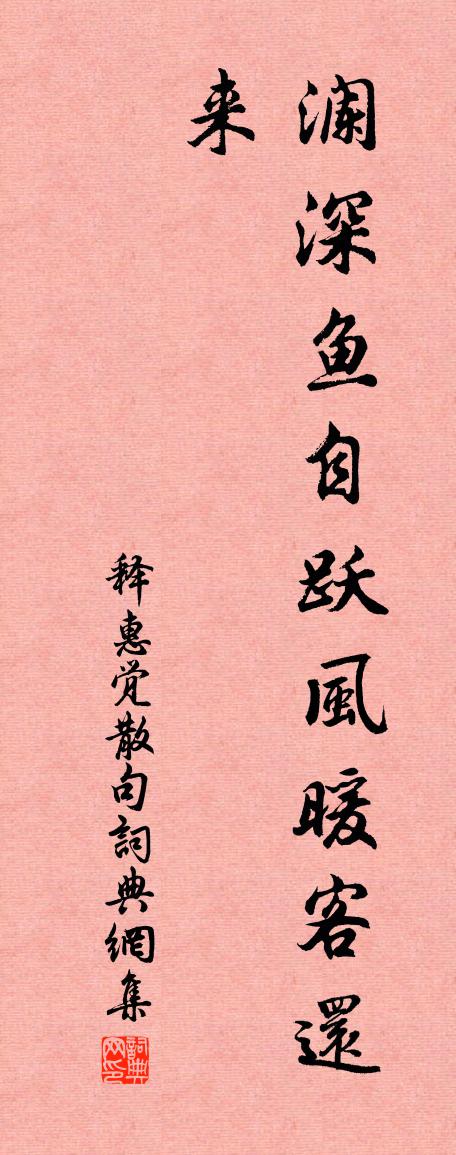 澜深鱼自跃風暖客還
来
释惠觉散句詞典網集
詞典网印